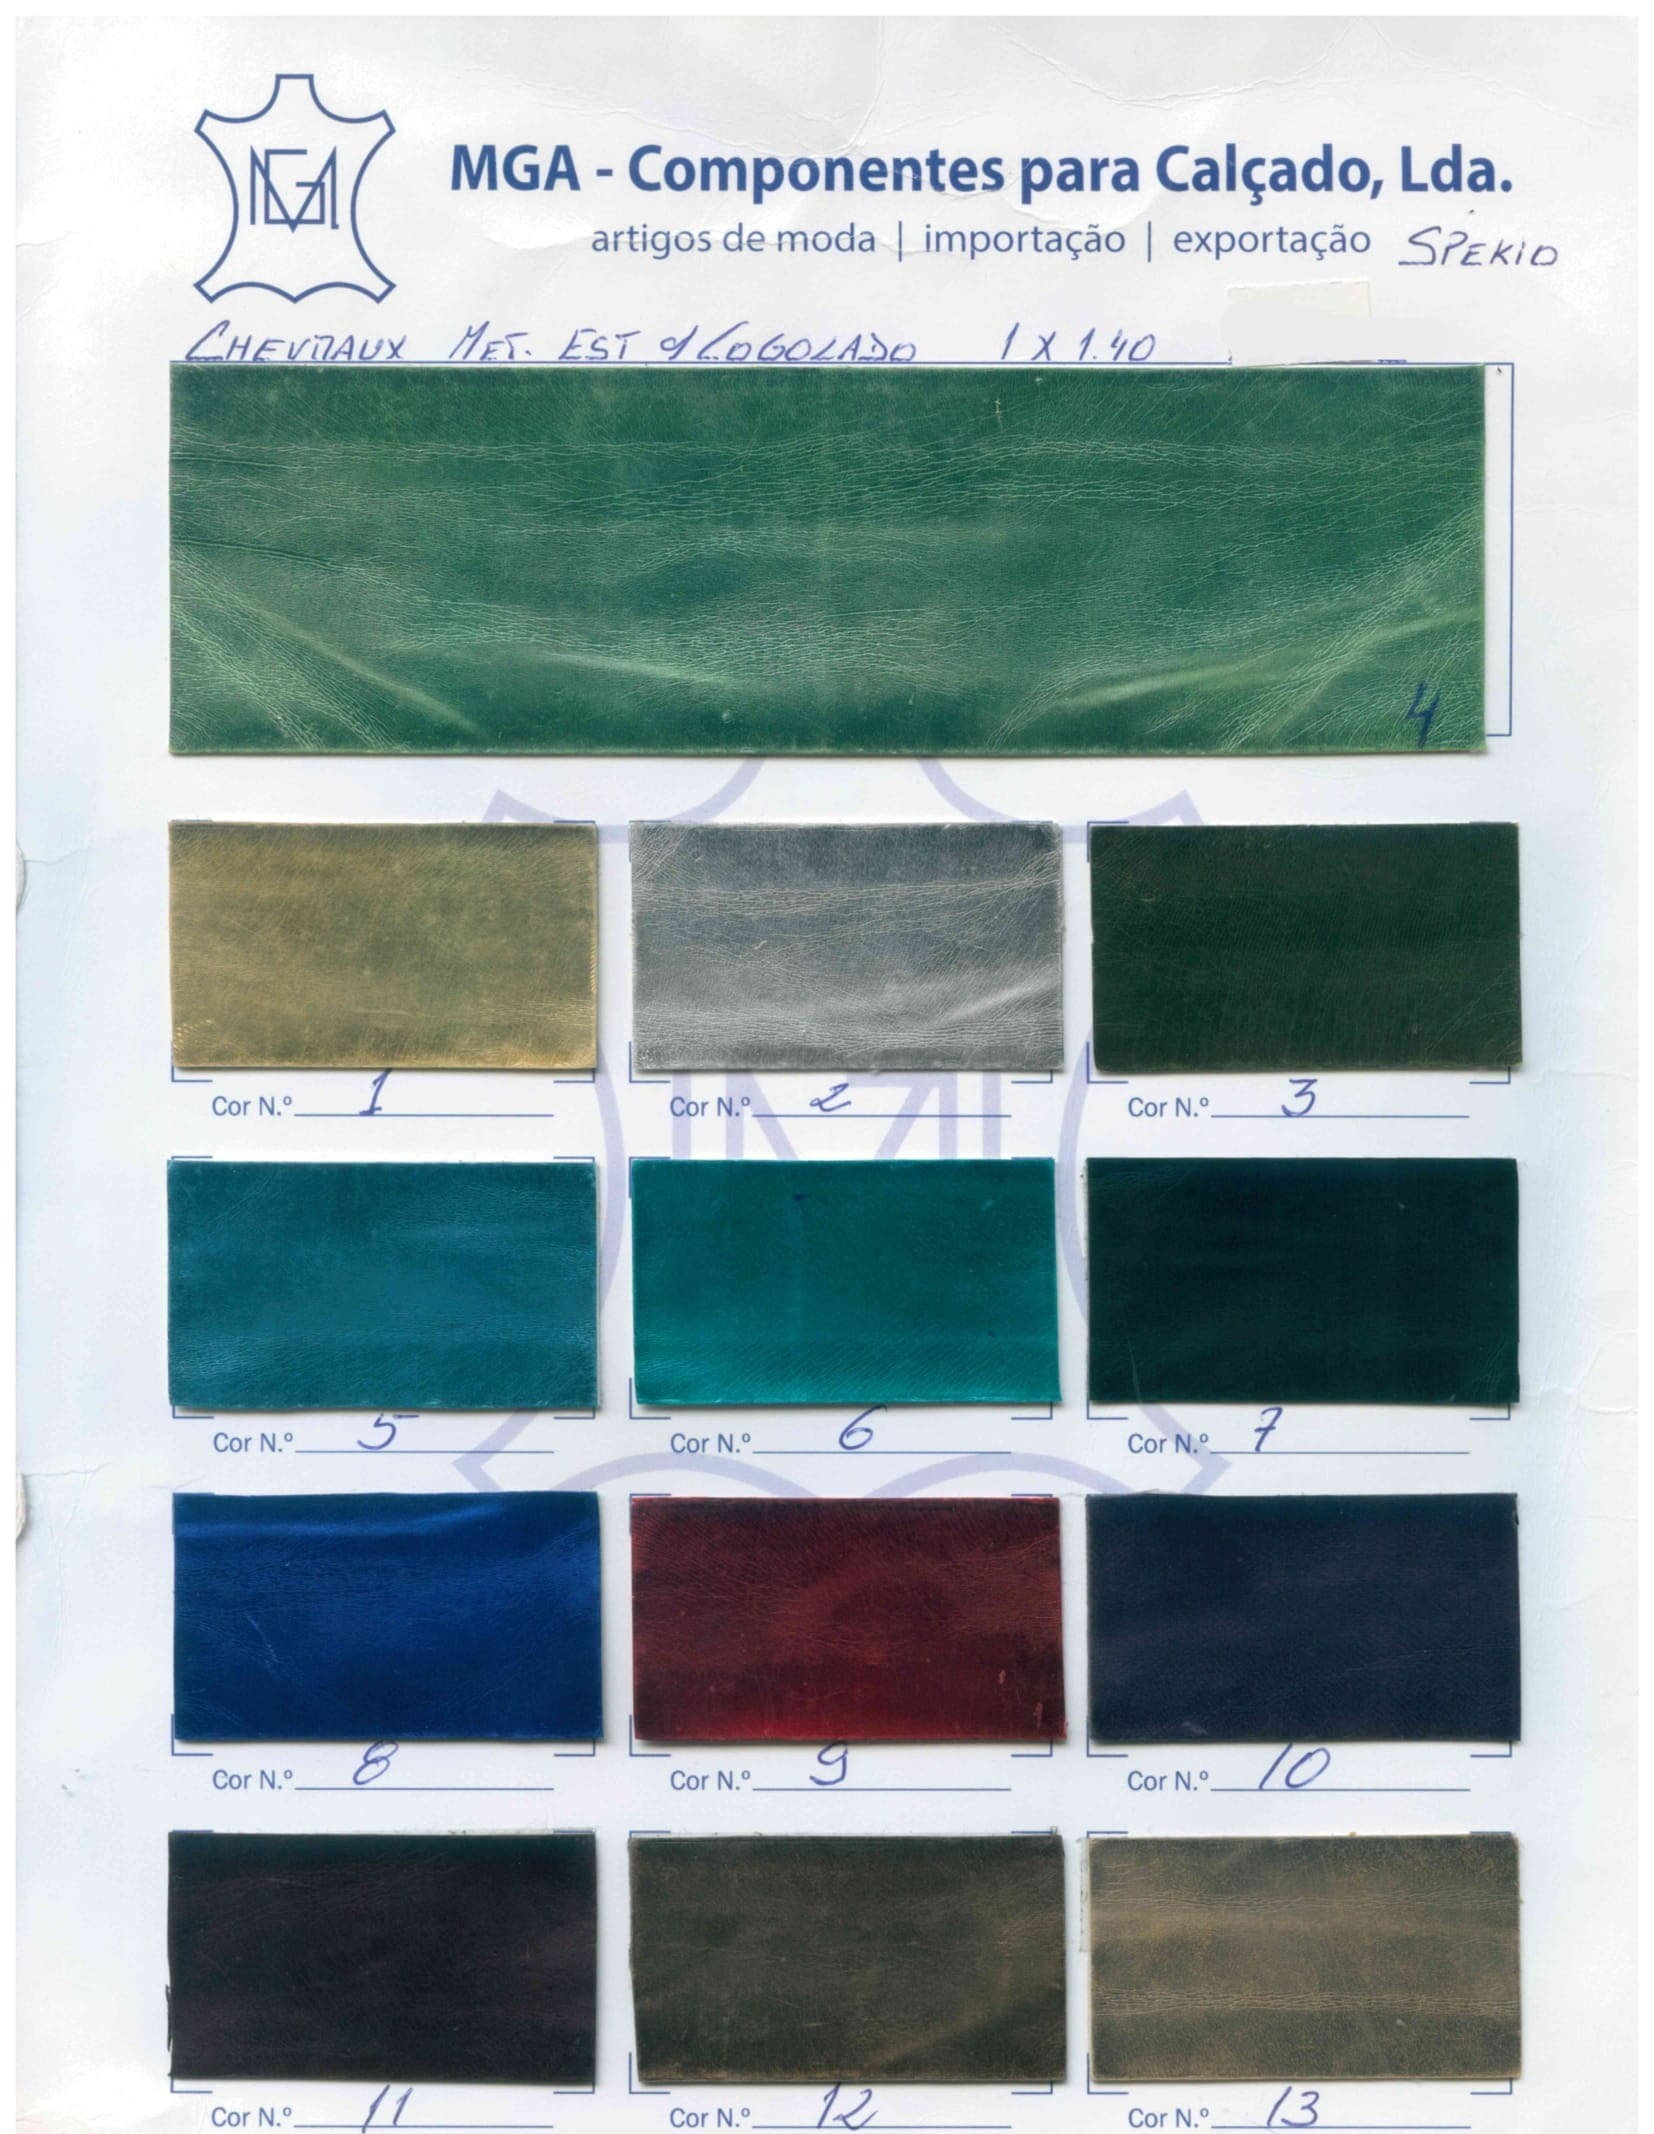 MGA - Componentes para Calçado, Lda.
artigos de moda | importação | exportação SPEKIO
CHEVRAUX MET. EST 1 X 1.40
4
Cor N.º 1 Cor N.º 2 Cor N.º 3
Cor N.º 5 Cor N.º 6 Cor N.º 7
Cor N.º 8 Cor N.º 9 Cor N.º 10
Cor N.º 11 Cor N.º 12 Cor N.º 13